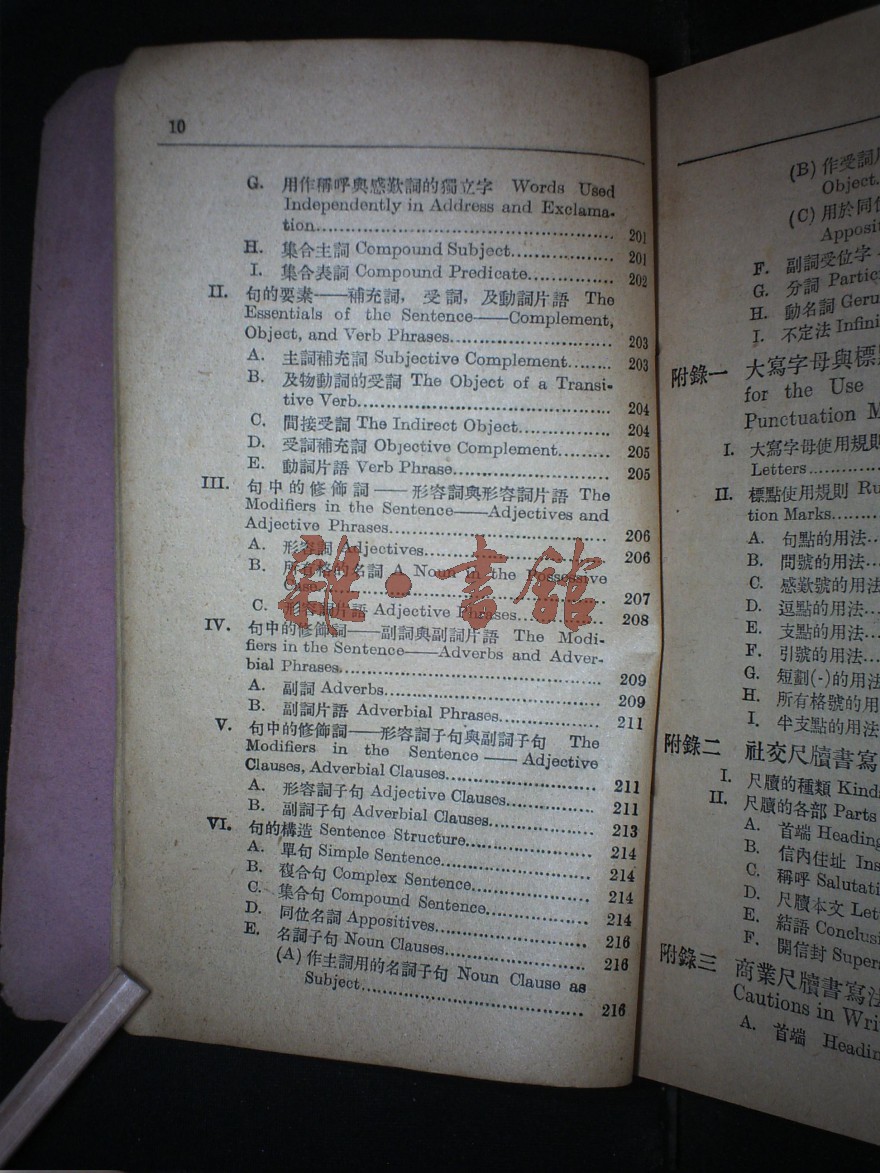 10
G. 用作稱呼與感歎詞的獨立字 Words Used
Independently in Address and Exclama-
tion 201
H. 集合主詞 Compound Subject 201
I. 集合表詞 Compound Predicate 202
II. 句的要素——補充詞，受詞，及動詞片語 The
Essentials of the Sentence——Complement,
Object, and Verb Phrases 203
A. 主詞補充詞 Subjective Complement 203
B. 及物動詞的受詞 The Object of a Transi-
tive Verb 204
C. 間接受詞 The Indirect Object 204
D. 受詞補充詞 Objective Complement 205
E. 動詞片語 Verb Phrase 205
III. 句中的修飾詞——形容詞與形容詞片語 The
Modifiers in the Sentence——Adjectives and
Adjective Phrases 206
A. 形容詞 Adjectives 206
B. 所有格的名詞 A Noun in the Possessive
Case 207
C. 形容詞片語 Adjective Phrases 208
IV. 句中的修飾詞——副詞與副詞片語 The Modi-
fiers in the Sentence——Adverbs and Adver-
bial Phrases 209
A. 副詞 Adverbs 209
B. 副詞片語 Adverbial Phrases 211
V. 句中的修飾詞——形容詞子句與副詞子句 The
Modifiers in the Sentence——Adjective
Clauses, Adverbial Clauses 211
A. 形容詞子句 Adjective Clauses 211
B. 副詞子句 Adverbial Clauses 213
VI. 句的構造 Sentence Structure 214
A. 單句 Simple Sentence 214
B. 複合句 Complex Sentence 214
C. 集合句 Compound Sentence 214
D. 同位名詞 Appositives 216
E. 名詞子句 Noun Clauses 216
(A) 作主詞用的名詞子句 Noun Clause as
Subject 216
雜·書館
(B) 作受詞
Object
(C) 用於同
Apposi
F. 副詞受位字
G. 分詞 Partic
H. 動名詞 Geru
I. 不定法 Infini
附錄一 大寫字母與標
for the Use
Punctuation M
I. 大寫字母使用規則
Letters
II. 標點使用規則 Ru
tion Marks
A. 句點的用法
B. 問號的用法
C. 感歎號的用法
D. 逗點的用法
E. 支點的用法
F. 引號的用法
G. 短劃(-)的用法
H. 所有格號的用
I. 半支點的用法
附錄二 社交尺牘書寫
I. 尺牘的種類 Kind
II. 尺牘的各部 Parts
A. 首端 Heading
B. 信內住址 Ins
C. 稱呼 Salutati
D. 尺牘本文 Let
E. 結語 Conclusi
F. 開信封 Supers
附錄三 商業尺牘書寫法
Cautions in Wri
A. 首端 Headin